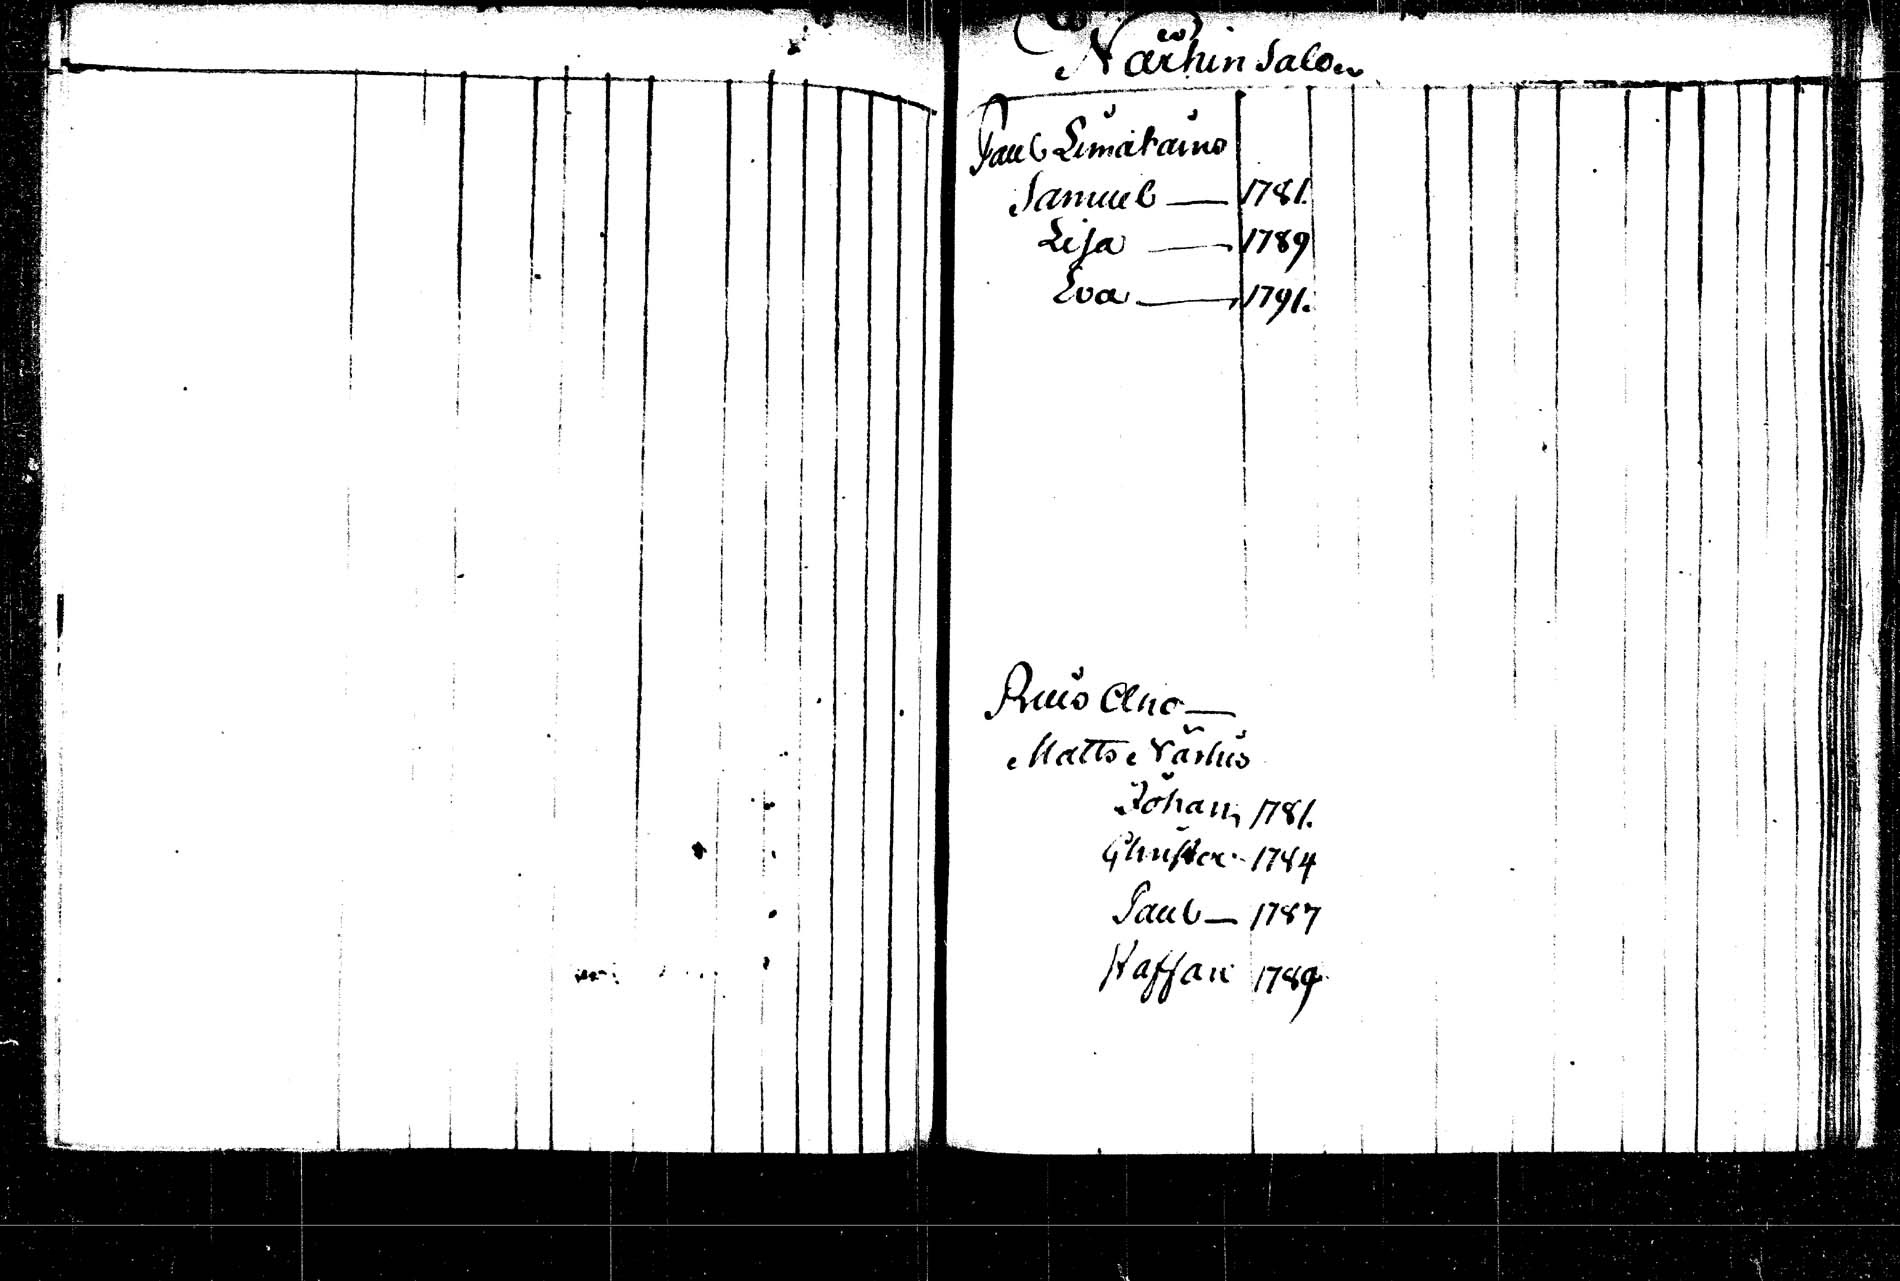 Närhin Salo
Paul Limatains
Samuel — 1781.
Lisa — 1789
Eva — 1791.
Matts Närhis
Johan, 1781.
Christer 1784
Paul — 1787
Staffan 1789